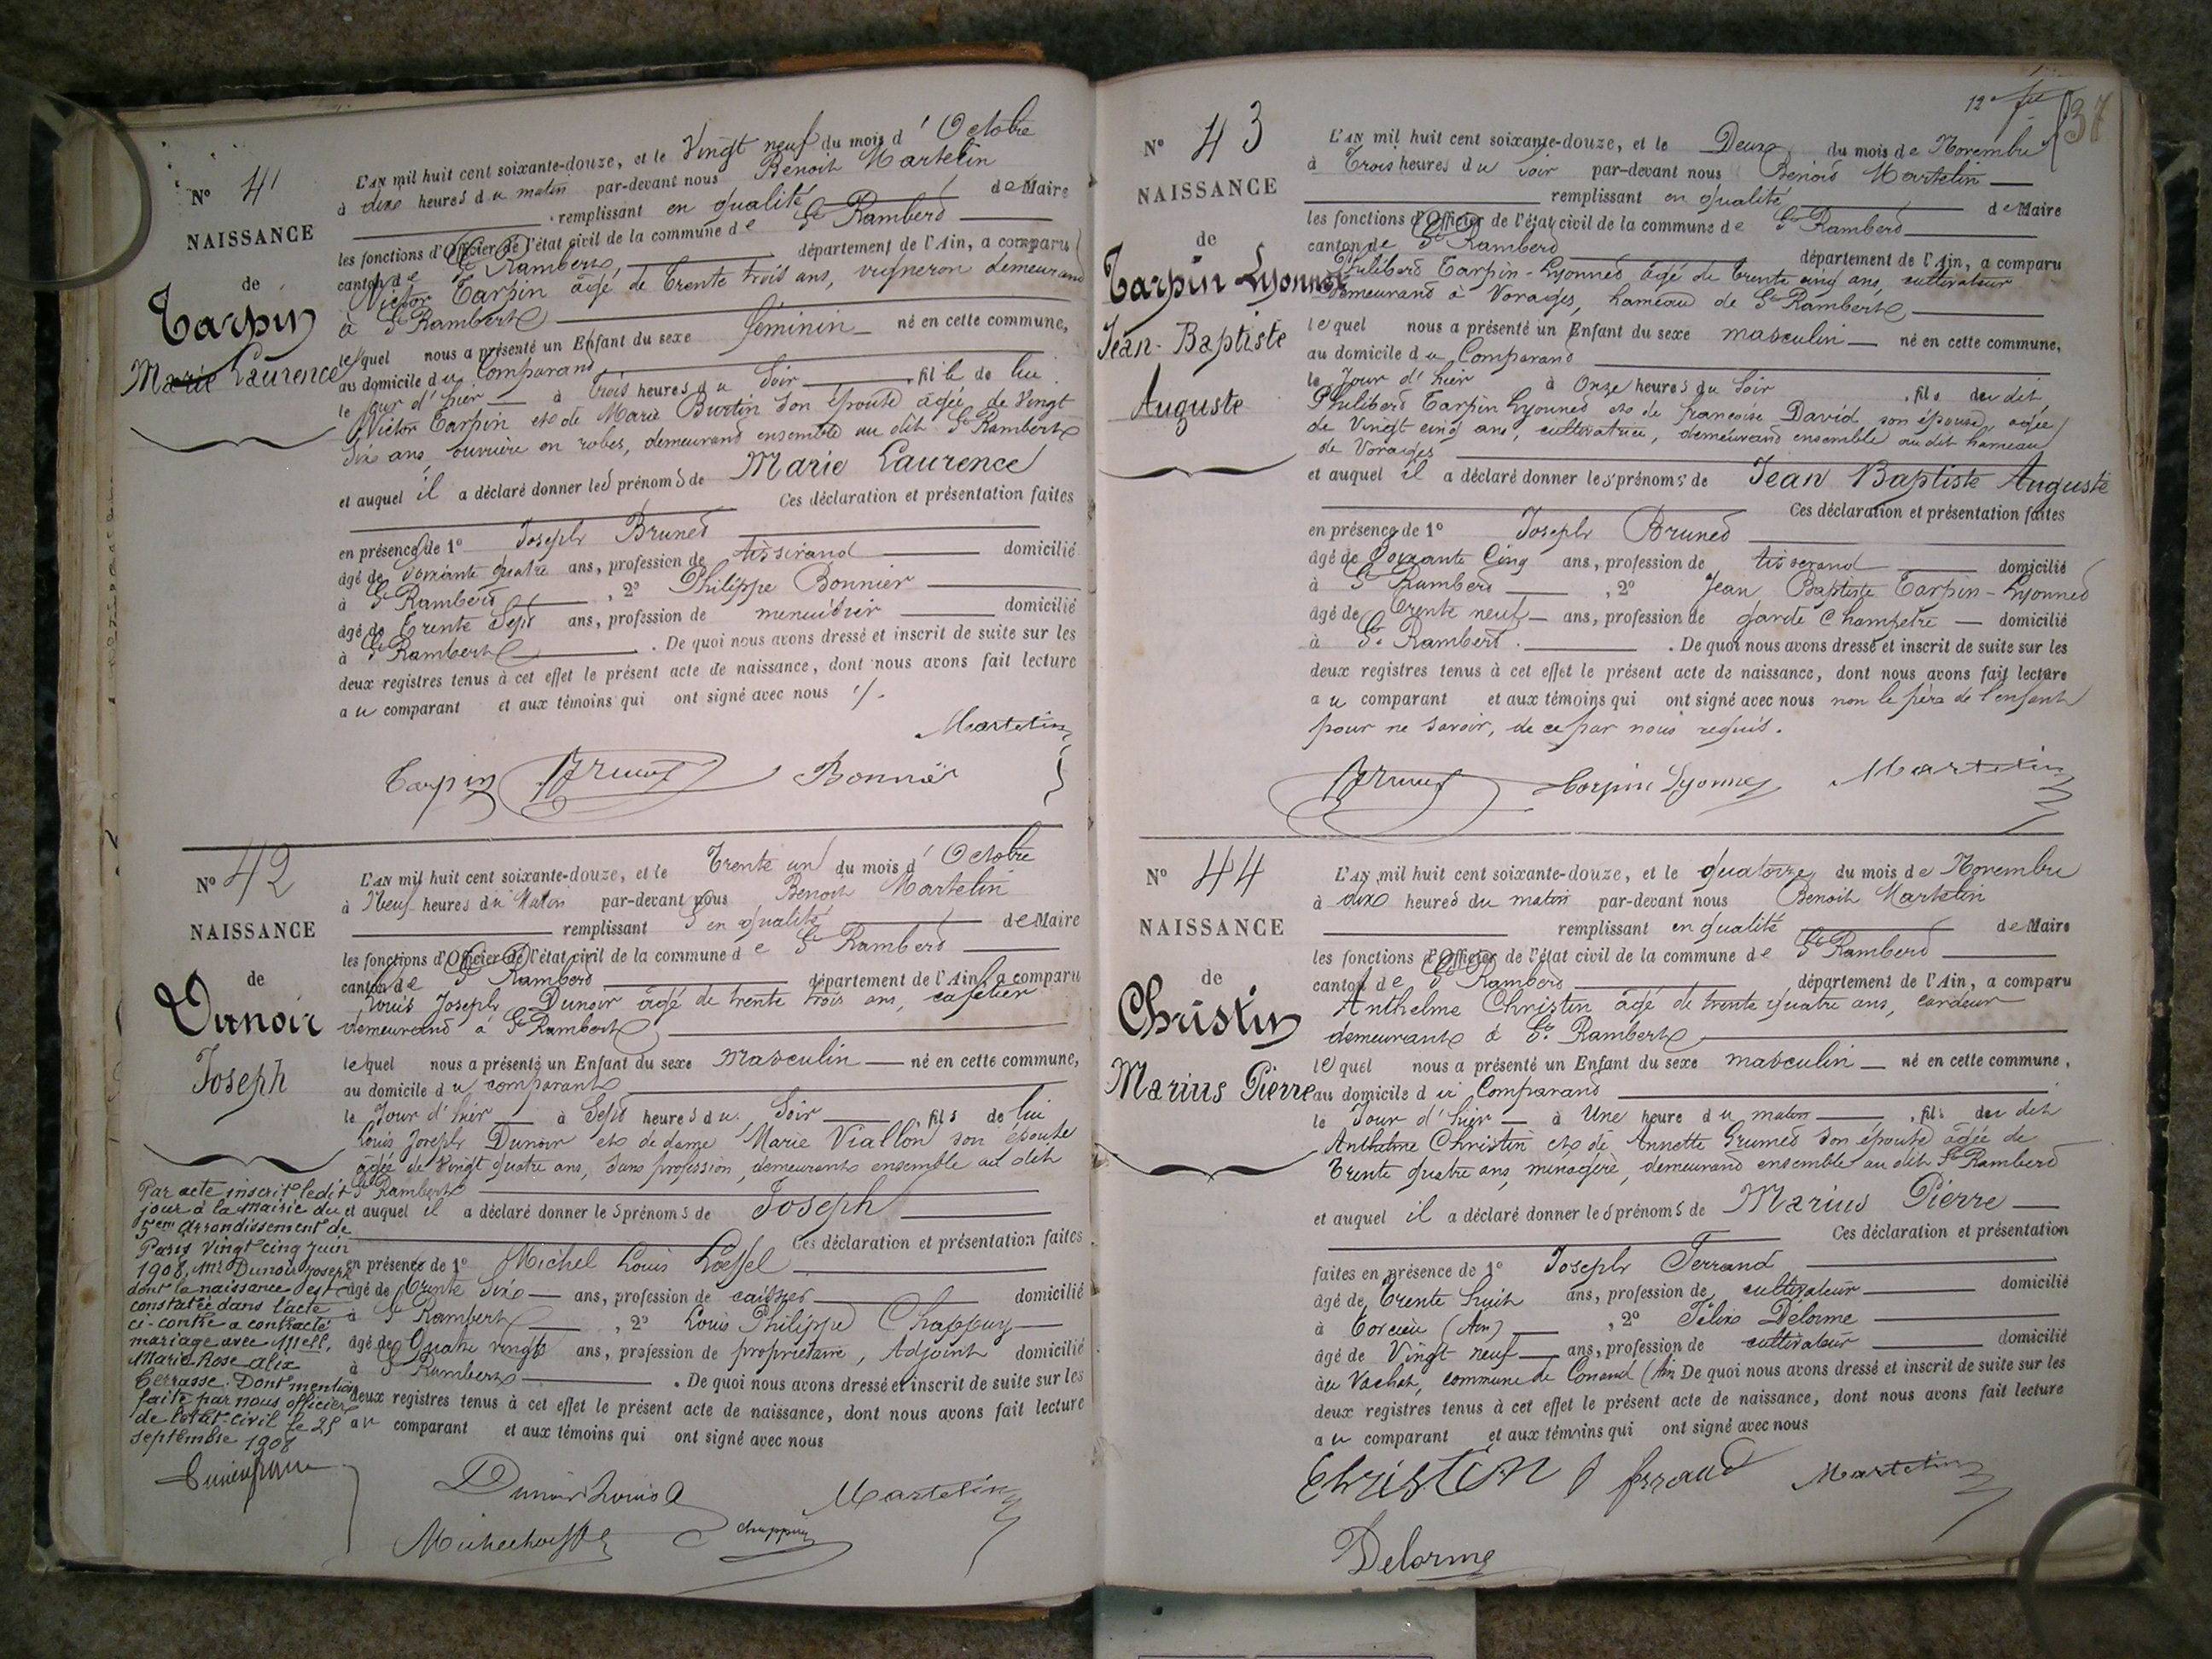 N° 41
NAISSANCE
de
Tarpin
Marie Laurence
L'AN mil huit cent soixante-douze, et le Vingt neuf du mois d'Octobre
à dix heures du matin par-devant nous Benoit Martelin
remplissant en qualité de Maire
les fonctions d'Officier de l'état civil de la commune de St Rambert
canton de St Rambert, département de l'Ain, a comparu
Victor Tarpin âgé de Trente trois ans, vigneron demeurant
à St Rambert
lequel nous a présenté un Enfant du sexe féminin né en cette commune,
au domicile du Comparant
le jour d'hier à trois heures du Soir fille de lui
Victor Tarpin et de Marie Burtin son épouse âgée de Vingt
six ans, ouvrière en robes, demeurant ensemble au dit St Rambert
et auquel il a déclaré donner les prénoms de Marie Laurence
Ces déclaration et présentation faites
en présence de 1° Joseph Brunet
âgé de soixante quatre ans, profession de tisserand domicilié
à St Rambert, 2° Philippe Bonnier
âgé de Trente Sept ans, profession de menuisier domicilié
à St Rambert. De quoi nous avons dressé et inscrit de suite sur les
deux registres tenus à cet effet le présent acte de naissance, dont nous avons fait lecture
au comparant et aux témoins qui ont signé avec nous ./.
Martelin
Tarpin Brunet Bonnier
N° 42
NAISSANCE
de
Dunoir
Joseph
L'AN mil huit cent soixante-douze, et le Trente un du mois d'Octobre
à Neuf heures du Matin par-devant nous Benoit Martelin
remplissant en qualité de Maire
les fonctions d'Officier de l'état civil de la commune de St Rambert
canton de St Rambert département de l'Ain, a comparu
Louis Joseph Dunoir âgé de trente trois ans, cafetier
demeurant à St Rambert
lequel nous a présenté un Enfant du sexe Masculin né en cette commune,
au domicile du comparant
le Jour d'hier à Sept heures du Soir fils de lui
Louis Joseph Dunoir et de dame Marie Viallon son épouse
âgée de Vingt quatre ans, sans profession, demeurant ensemble au dit
St Rambert
et auquel il a déclaré donner les prénoms de Joseph
Ces déclaration et présentation faites
en présence de 1° Michel Louis Loeffel
âgé de Trente Six ans, profession de caissier domicilié
à St Rambert, 2° Louis Philippe Chappuy
âgé de Quatre vingts ans, profession de propriétaire, Adjoint domicilié
à St Rambert. De quoi nous avons dressé et inscrit de suite sur les
deux registres tenus à cet effet le présent acte de naissance, dont nous avons fait lecture
au comparant et aux témoins qui ont signé avec nous
Par acte inscrit ledit
jour à la Mairie du
5em arrondissement de
Paris Vingt cinq Juin
1908, Mr Dunoir Joseph
dont la naissance est
constatée dans l'acte
ci-contre a contracté
mariage avec Melle
Marie Rose Alix
Terrasse. Dont mention
faite par nous officier
de l'état civil le 25
septembre 1908
Dunoir Louis Martelin
Chappuy
12e fet
37
N° 43
NAISSANCE
de
Tarpin Lyonnet
Jean-Baptiste
Auguste
L'AN mil huit cent soixante-douze, et le Deux du mois de Novembre
à Trois heures du soir par-devant nous Benoit Martelin
remplissant en qualité de Maire
les fonctions d'Officier de l'état civil de la commune de St Rambert
canton de St Rambert département de l'Ain, a comparu
Philibert Tarpin-Lyonnet âgé de trente cinq ans, cultivateur
demeurant à Vorages, hameau de St Rambert
lequel nous a présenté un Enfant du sexe masculin né en cette commune,
au domicile du Comparant
le Jour d'hier à Onze heures du Soir, fils du dit
Philibert Tarpin Lyonnet et de françoise David son épouse, âgée
de Vingt cinq ans, cultivatrice, demeurant ensemble au dit hameau
de Vorages
et auquel il a déclaré donner les prénoms de Jean Baptiste Auguste
Ces déclaration et présentation faites
en présence de 1° Joseph Brunet
âgé de Soixante Cinq ans, profession de tisserand domicilié
à St Rambert, 2° Jean Baptiste Tarpin-Lyonnet
âgé de Trente neuf ans, profession de garde Champetre domicilié
à St Rambert. De quoi nous avons dressé et inscrit de suite sur les
deux registres tenus à cet effet le présent acte de naissance, dont nous avons fait lecture
au comparant et aux témoins qui ont signé avec nous non le père de l'enfant
pour ne savoir, de ce par nous requis.
Brunet Tarpin Lyonnet Martelin
N° 44
NAISSANCE
de
Christin
Marius Pierre
L'AN mil huit cent soixante-douze, et le quatorze du mois de Novembre
à dix heures du matin par-devant nous Benoit Martelin
remplissant en qualité de Maire
les fonctions d'Officier de l'état civil de la commune de St Rambert
canton de St Rambert département de l'Ain, a comparu
Anthelme Christin âgé de trente quatre ans, cardeur
demeurant à St Rambert
lequel nous a présenté un Enfant du sexe masculin né en cette commune,
au domicile du Comparant
le Jour d'hier à Une heure du matin, fils du dit
Anthelme Christin et de Annette Grumet son épouse âgée de
Trente quatre ans, ménagère, demeurant ensemble au dit St Rambert
et auquel il a déclaré donner les prénoms de Marius Pierre
Ces déclaration et présentation
faites en présence de 1° Joseph Ferrand
âgé de Trente huit ans, profession de cultivateur domicilié
à Torcieu (Ain), 2° Félix Delorme
âgé de Vingt neuf ans, profession de cultivateur domicilié
au Vachat, commune de Conand (Ain De quoi nous avons dressé et inscrit de suite sur les
deux registres tenus à cet effet le présent acte de naissance, dont nous avons fait lecture
au comparant et aux témoins qui ont signé avec nous
Christin J ferrand Martelin
Delorme